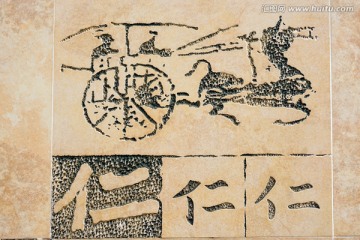 仁 仁 仁
www.huitu.com